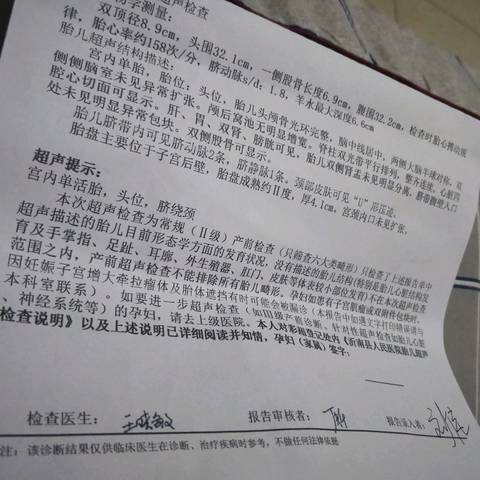 超声检查
物学测量:
双顶径8.9cm,头围32.1cm,一侧股骨长度6.9cm,腹围32.2cm,检查时胎心搏动规
律,胎心率约158次/分,脐动脉s/d:1.8,羊水最大深度6.6cm
胎儿超声结构描述:
宫内单胎,胎位:头位,胎儿头颅骨光环完整,脑中线居中,两侧大脑半球对称,双
侧侧脑室未见异常扩张。颅后窝池无明显增宽。脊柱双光带平行排列,整齐连续,心脏四
腔心切面可显示。肝、胃、双肾、膀胱可见,胎儿双侧肾盂未见明显分离,脐带腹壁入口
处未见明显异常包块。双侧股骨可显示。
胎儿脐带内可见脐动脉2条,脐静脉1条。颈部皮肤可见“U”形压迹。
胎盘主要位于子宫后壁,胎盘成熟约Ⅱ度,厚4.1cm,宫颈内口未见扩张。
超声提示:
宫内单活胎,头位,脐绕颈
本次超声检查为常规(Ⅱ级)产前检查(只筛查六大类畸形)只检查了上述报告单中
超声描述的胎儿目前形态学方面的发育状况,没有描述的胎儿结构(特别是胎儿眼结构发
育及手掌指、足趾、耳廓、外生殖器、肛门、尾铁等体表较小部位发育)不在本次超声检查
范围之内,产前超声检查不能排除所有胎儿畸形。孕妇如患有子宫肌瘤或双附件包块时,
因妊娠子宫增大牵拉瘤体及胎体遮挡有时可能会被漏诊(本报告中如遇文字打印错误请与
本科室联系)。如要进一步超声检查(如Ⅲ级产前诊断、针对性超声检查如胎儿心脏
、神经系统等)的孕妇,请去上级医院。本人对彩超登记处内《沂南县人民医院胎儿超声
检查说明》以及上述说明已详细阅读并知情,孕妇(家属)签字:
检查医生: 王晓敏 报告审核者: 报告录入者:
注: 该诊断结果仅供临床医生在诊断、治疗疾病时参考,不做任何法律依据